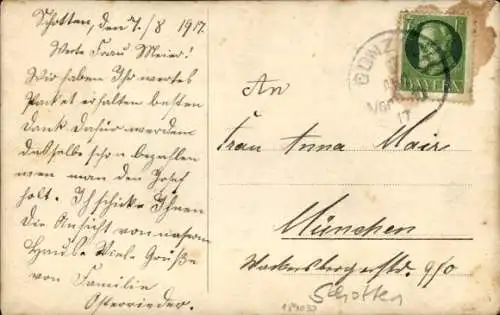 Schotten, den 7./8 1917.
Werte Frau Meier!
Wir haben Ihr wertes
Paket erhalten besten
Dank dafür werden
dasselbe schon bezahlen
wen man den Josef
holt. Ich schicke Ihnen
die Ansicht von unserm
Hause. Viele Grüße
von Familie
Osterrieder.
7 7
BAYERN
GÜNZ
17
An
Frau Anna Mair
München
Wackersbergerstr.
Schotten